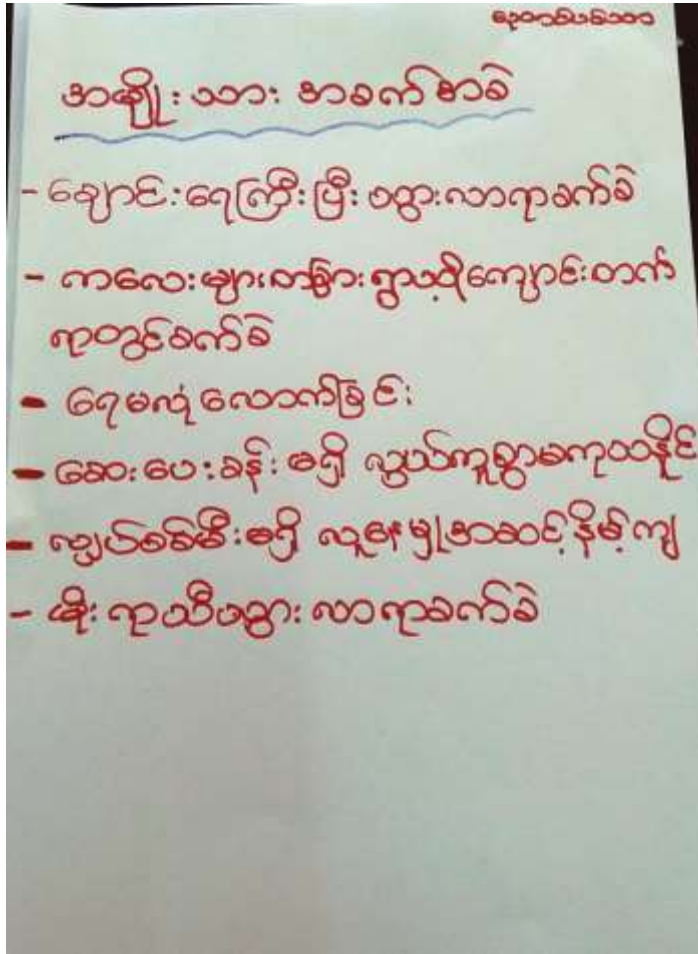 အမျိုးသား အခက်အခဲ
- ချောင်းရေကြီးပြီး သွားလာရာခက်ခဲ
- ကလေးများတခြားရွာသို့ကျောင်းတက်
ရာတွင်ခက်ခဲ
- ရေမလုံလောက်ခြင်း
- ဆေးပေးခန်းမရှိ လွယ်ကူစွာမကုသနိုင်
- လျှပ်စစ်မီးမရှိ လူနေမှုအဆင့်နိမ့်ကျ
- မိုးရာသီသွားလာရာခက်ခဲ